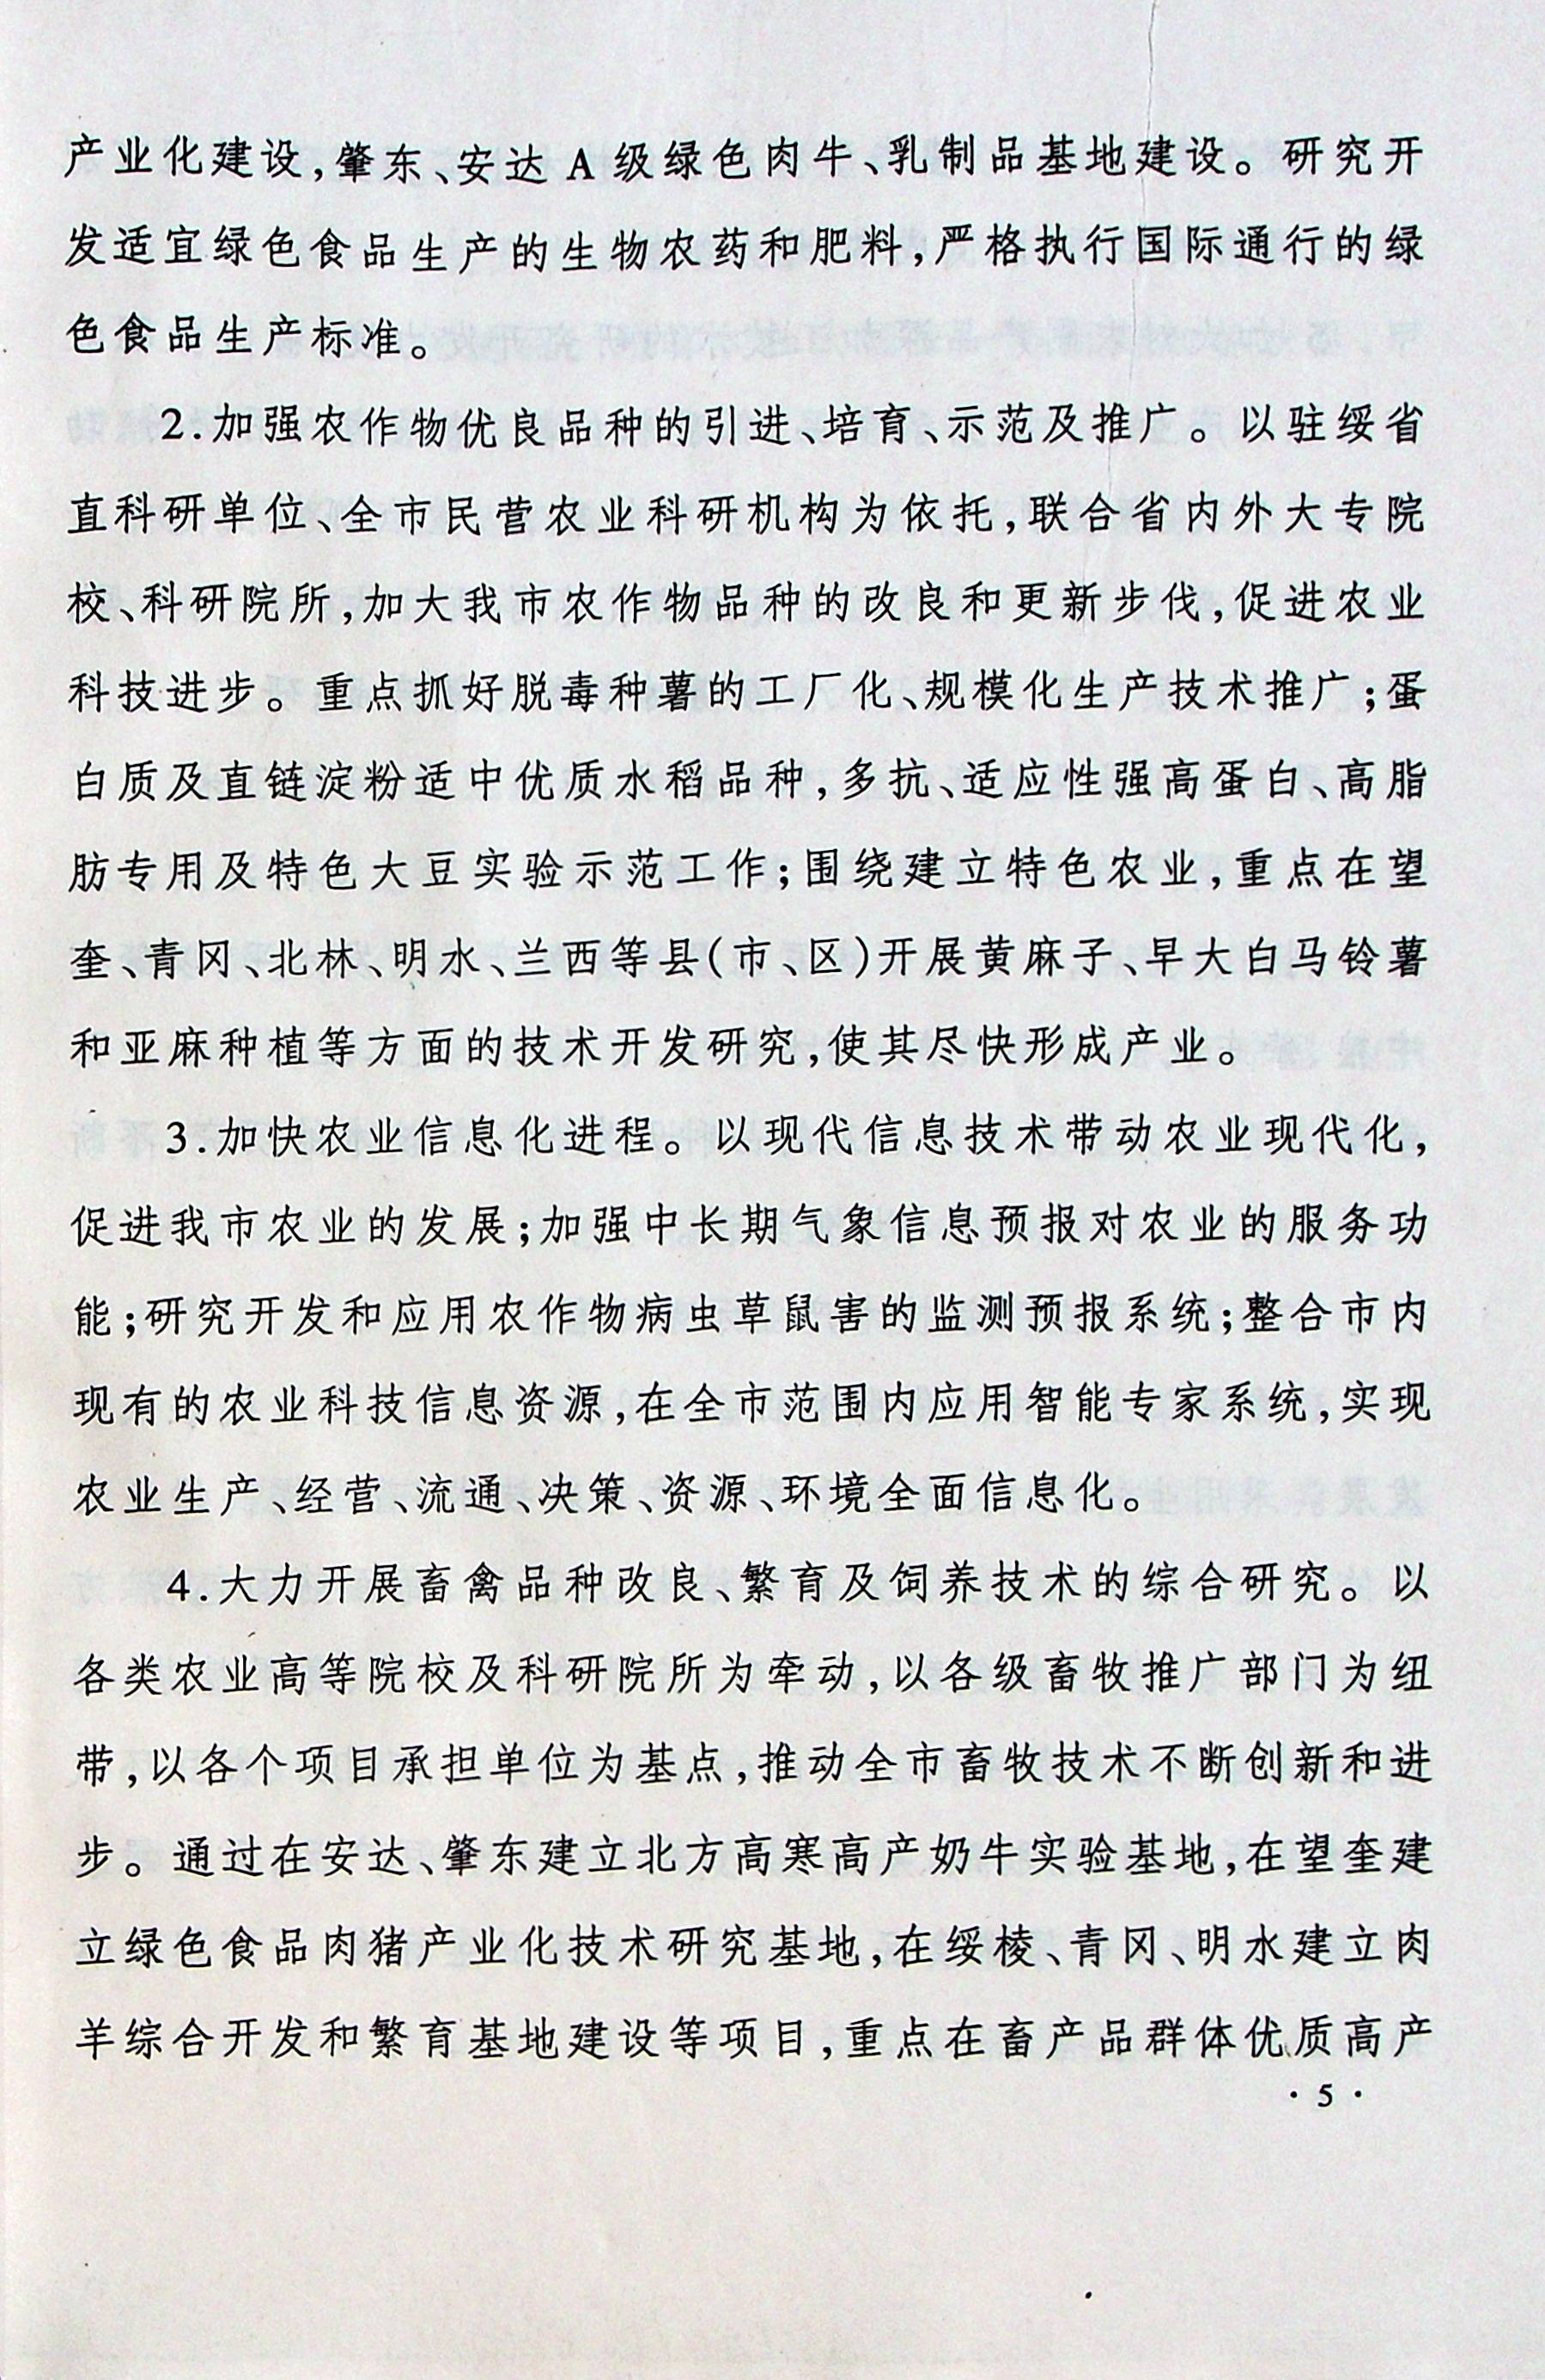 产业化建设,肇东、安达 A 级绿色肉牛、乳制品基地建设。研究开
发适宜绿色食品生产的生物农药和肥料,严格执行国际通行的绿
色食品生产标准。
2.加强农作物优良品种的引进、培育、示范及推广。以驻绥省
直科研单位、全市民营农业科研机构为依托,联合省内外大专院
校、科研院所,加大我市农作物品种的改良和更新步伐,促进农业
科技进步。重点抓好脱毒种薯的工厂化、规模化生产技术推广;蛋
白质及直链淀粉适中优质水稻品种,多抗、适应性强高蛋白、高脂
肪专用及特色大豆实验示范工作;围绕建立特色农业,重点在望
奎、青冈、北林、明水、兰西等县(市、区)开展黄麻子、早大白马铃薯
和亚麻种植等方面的技术开发研究,使其尽快形成产业。
3.加快农业信息化进程。以现代信息技术带动农业现代化,
促进我市农业的发展;加强中长期气象信息预报对农业的服务功
能;研究开发和应用农作物病虫草鼠害的监测预报系统;整合市内
现有的农业科技信息资源,在全市范围内应用智能专家系统,实现
农业生产、经营、流通、决策、资源、环境全面信息化。
4.大力开展畜禽品种改良、繁育及饲养技术的综合研究。以
各类农业高等院校及科研院所为牵动,以各级畜牧推广部门为纽
带,以各个项目承担单位为基点,推动全市畜牧技术不断创新和进
步。通过在安达、肇东建立北方高寒高产奶牛实验基地,在望奎建
立绿色食品肉猪产业化技术研究基地,在绥棱、青冈、明水建立肉
羊综合开发和繁育基地建设等项目,重点在畜产品群体优质高产
·5·